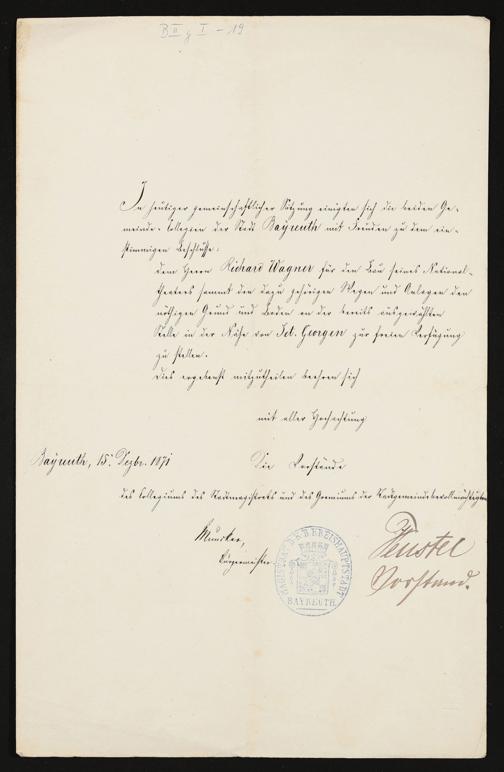 B II g I - 19
In heutiger gemeinschaftlicher Sitzung einigten sich die beiden Ge-
meinde-Collegien der Stadt Bayreuth mit Freuden zu dem ein-
stimmigen Beschlusse:
dem Herrn Richard Wagner für den Bau seines National-
theaters sammt den dazu gehörigen Wegen und Anlagen den
nöthigen Grund und Boden an der bereits ausgewählten
Stelle in der Nähe von Sct. Georgen zur freien Verfügung
zu stellen.
Dies ergebenst mitzutheilen beehren sich
mit aller Hochachtung
Bayreuth, 15. Dezbr. 1871
Die Vorstände
des Collegiums des Stadtmagistrats und des Gremiums der Stadtgemeindebevollmächtigten
Muncker,
Bürgermeister
MAGISTRAT D. K. B. KREISHAUPTSTADT
BAYREUTH
Feustel
Vorstand.